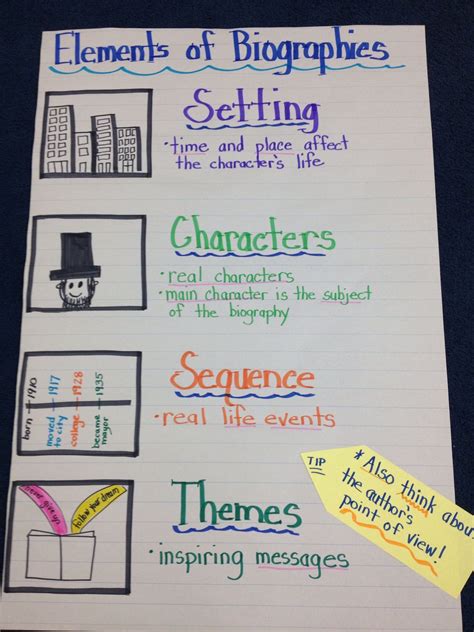 Elements of Biographies
Setting
• time and place affect
the character's life
Characters
• real characters
• main character is the subject
of the biography
born 1910
moved to city 1917
college 1928
became mayor 1935
Sequence
• real life events
TIP
* Also think about
the author's
point of view!
never give up
follow your dream
Themes
• inspiring messages